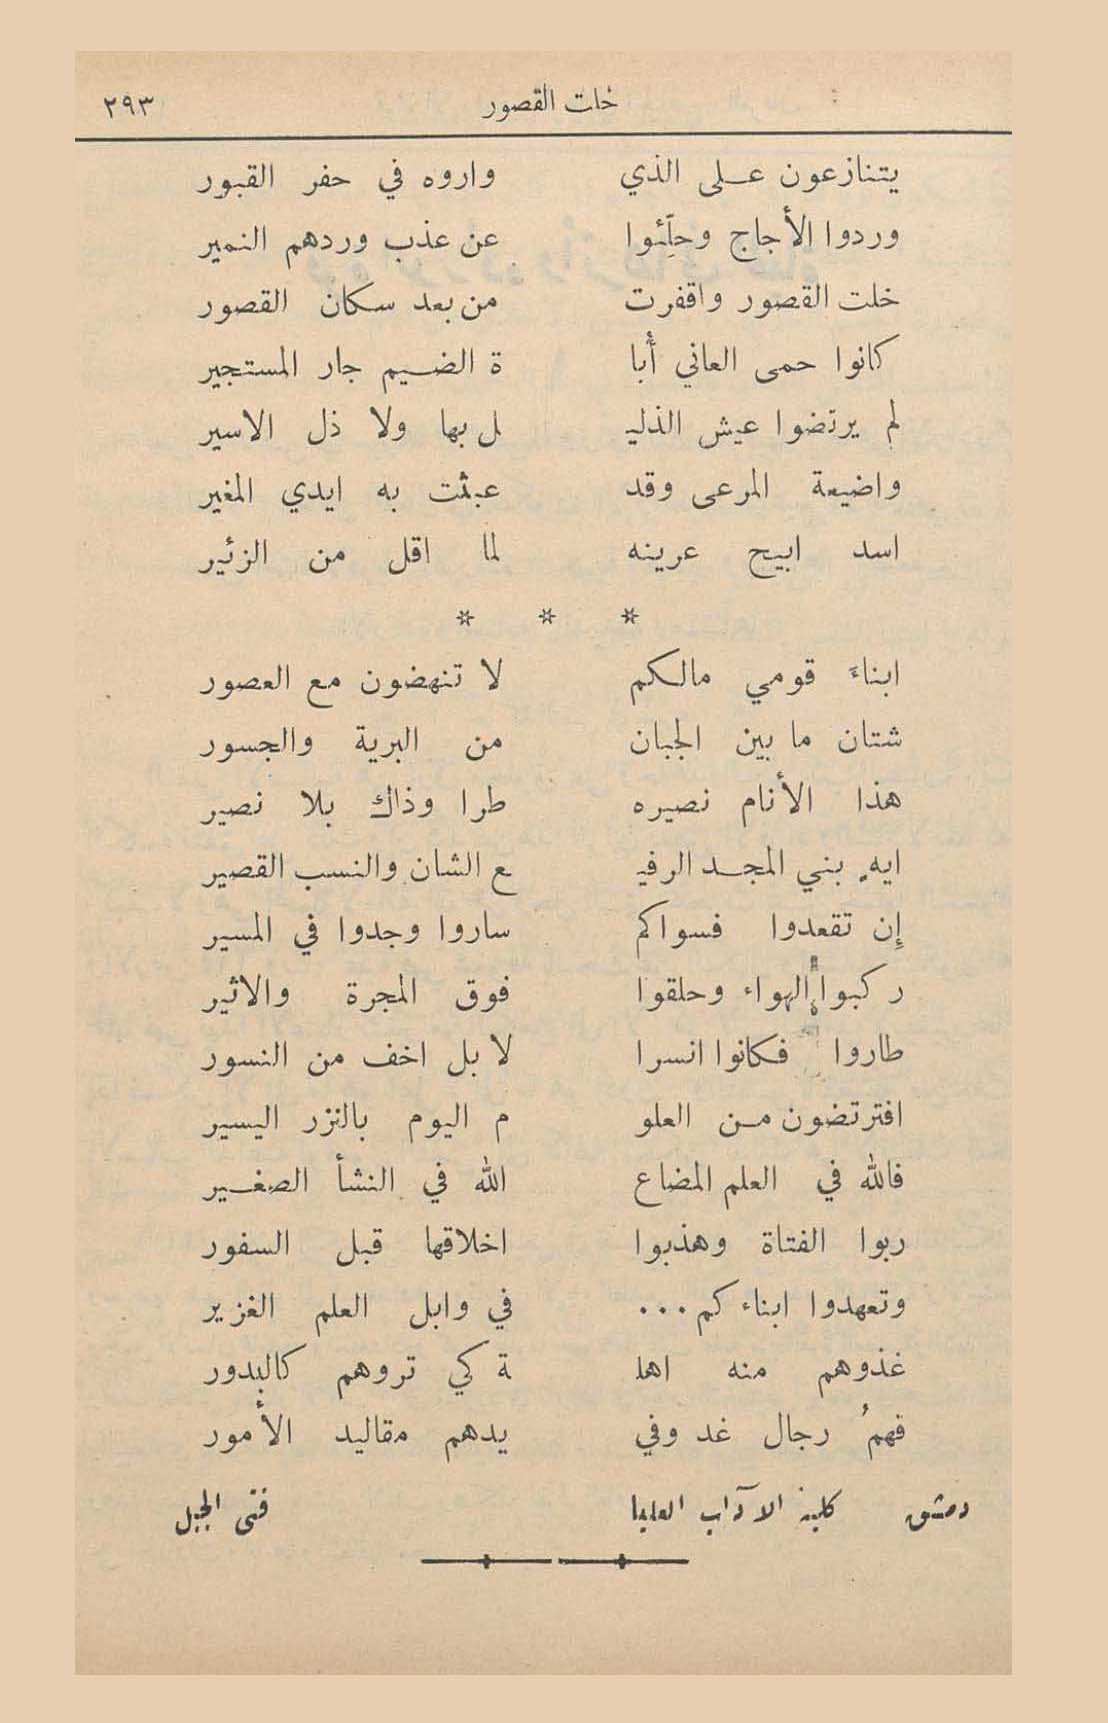 خلت القصور ٢٩٣
يتنازعون عـلى الذي واروه في حفر القبور
وردوا الأجاج وحلِّئوا عن عذب وردهم النمير
خلت القصور واقفرت من بعد سكان القصور
كانوا حمى العاني أُبا ة الضيم جار المستجير
لم يرتضوا عيش الذليـ ـل بها ولا ذل الاسير
واضيعة المرعى وقد عبثت به ايدي المغير
اسد ابيح عرينه لما اقل من الزئير
* * *
ابناءَ قومي مالكم لا تنهضون مع العصور
شتان ما بين الجبان من البرية والجسور
هذا الأنام نصيره طرا وذاك بلا نصير
ايهٍ بني المجد الرفيـ ـع الشان والنسب القصير
إن تقعدوا فسواكم ساروا وجدوا في المسير
ركبوا الهواء وحلقوا فوق المجرة والاثير
طاروا فكانوا انسرا لا بل اخف من النسور
افترتضون من العلو م اليوم بالنزر اليسير
فالله في العلم المضاع الله في النشأ الصغير
ربوا الفتاة وهذبوا اخلاقها قبل السفور
وتعهدوا ابناءكم ... في وابل العلم الغزير
غذوهم منه اهلـ ـة كي تروهم كالبدور
فهمُ رجال غد وفي يدهم مقاليد الأمور
دمشق كلية الآداب العليا فتى الجبل